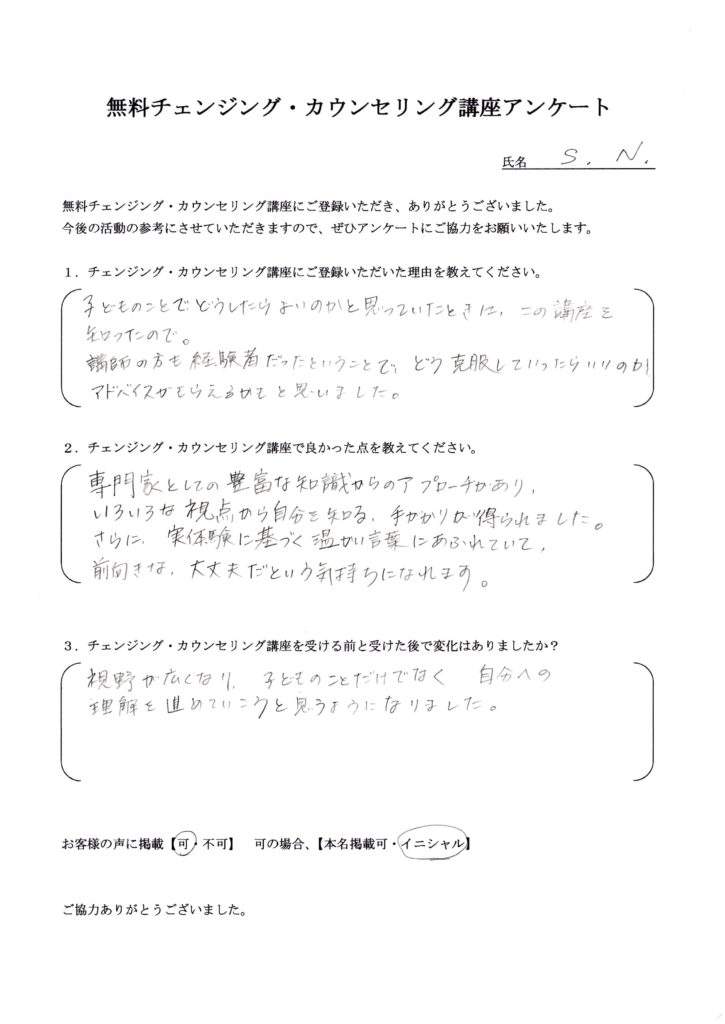 無料チェンジング・カウンセリング講座アンケート
氏名 S. N.
無料チェンジング・カウンセリング講座にご登録いただき、ありがとうございました。
今後の活動の参考にさせていただきますので、ぜひアンケートにご協力をお願いいたします。
１．チェンジング・カウンセリング講座にご登録いただいた理由を教えてください。
子どものことでどうしたらよいのかと思っていたときに、この講座を
知ったので。
講師の方も経験者だったということで、どう克服していったらいいのか
アドバイスがもらえるかもと思いました。
２．チェンジング・カウンセリング講座で良かった点を教えてください。
専門家としての豊富な知識からのアプローチがあり、
いろいろな視点から自分を知る、手がかりが得られました。
さらに、実体験に基づく温かい言葉にあふれていて、
前向きな、大丈夫だという気持ちになれます。
３．チェンジング・カウンセリング講座を受ける前と受けた後で変化はありましたか？
視野が広くなり、子どものことだけでなく 自分への
理解を進めていこうと思うようになりました。
お客様の声に掲載【可・不可】 可の場合、【本名掲載可・イニシャル】
ご協力ありがとうございました。